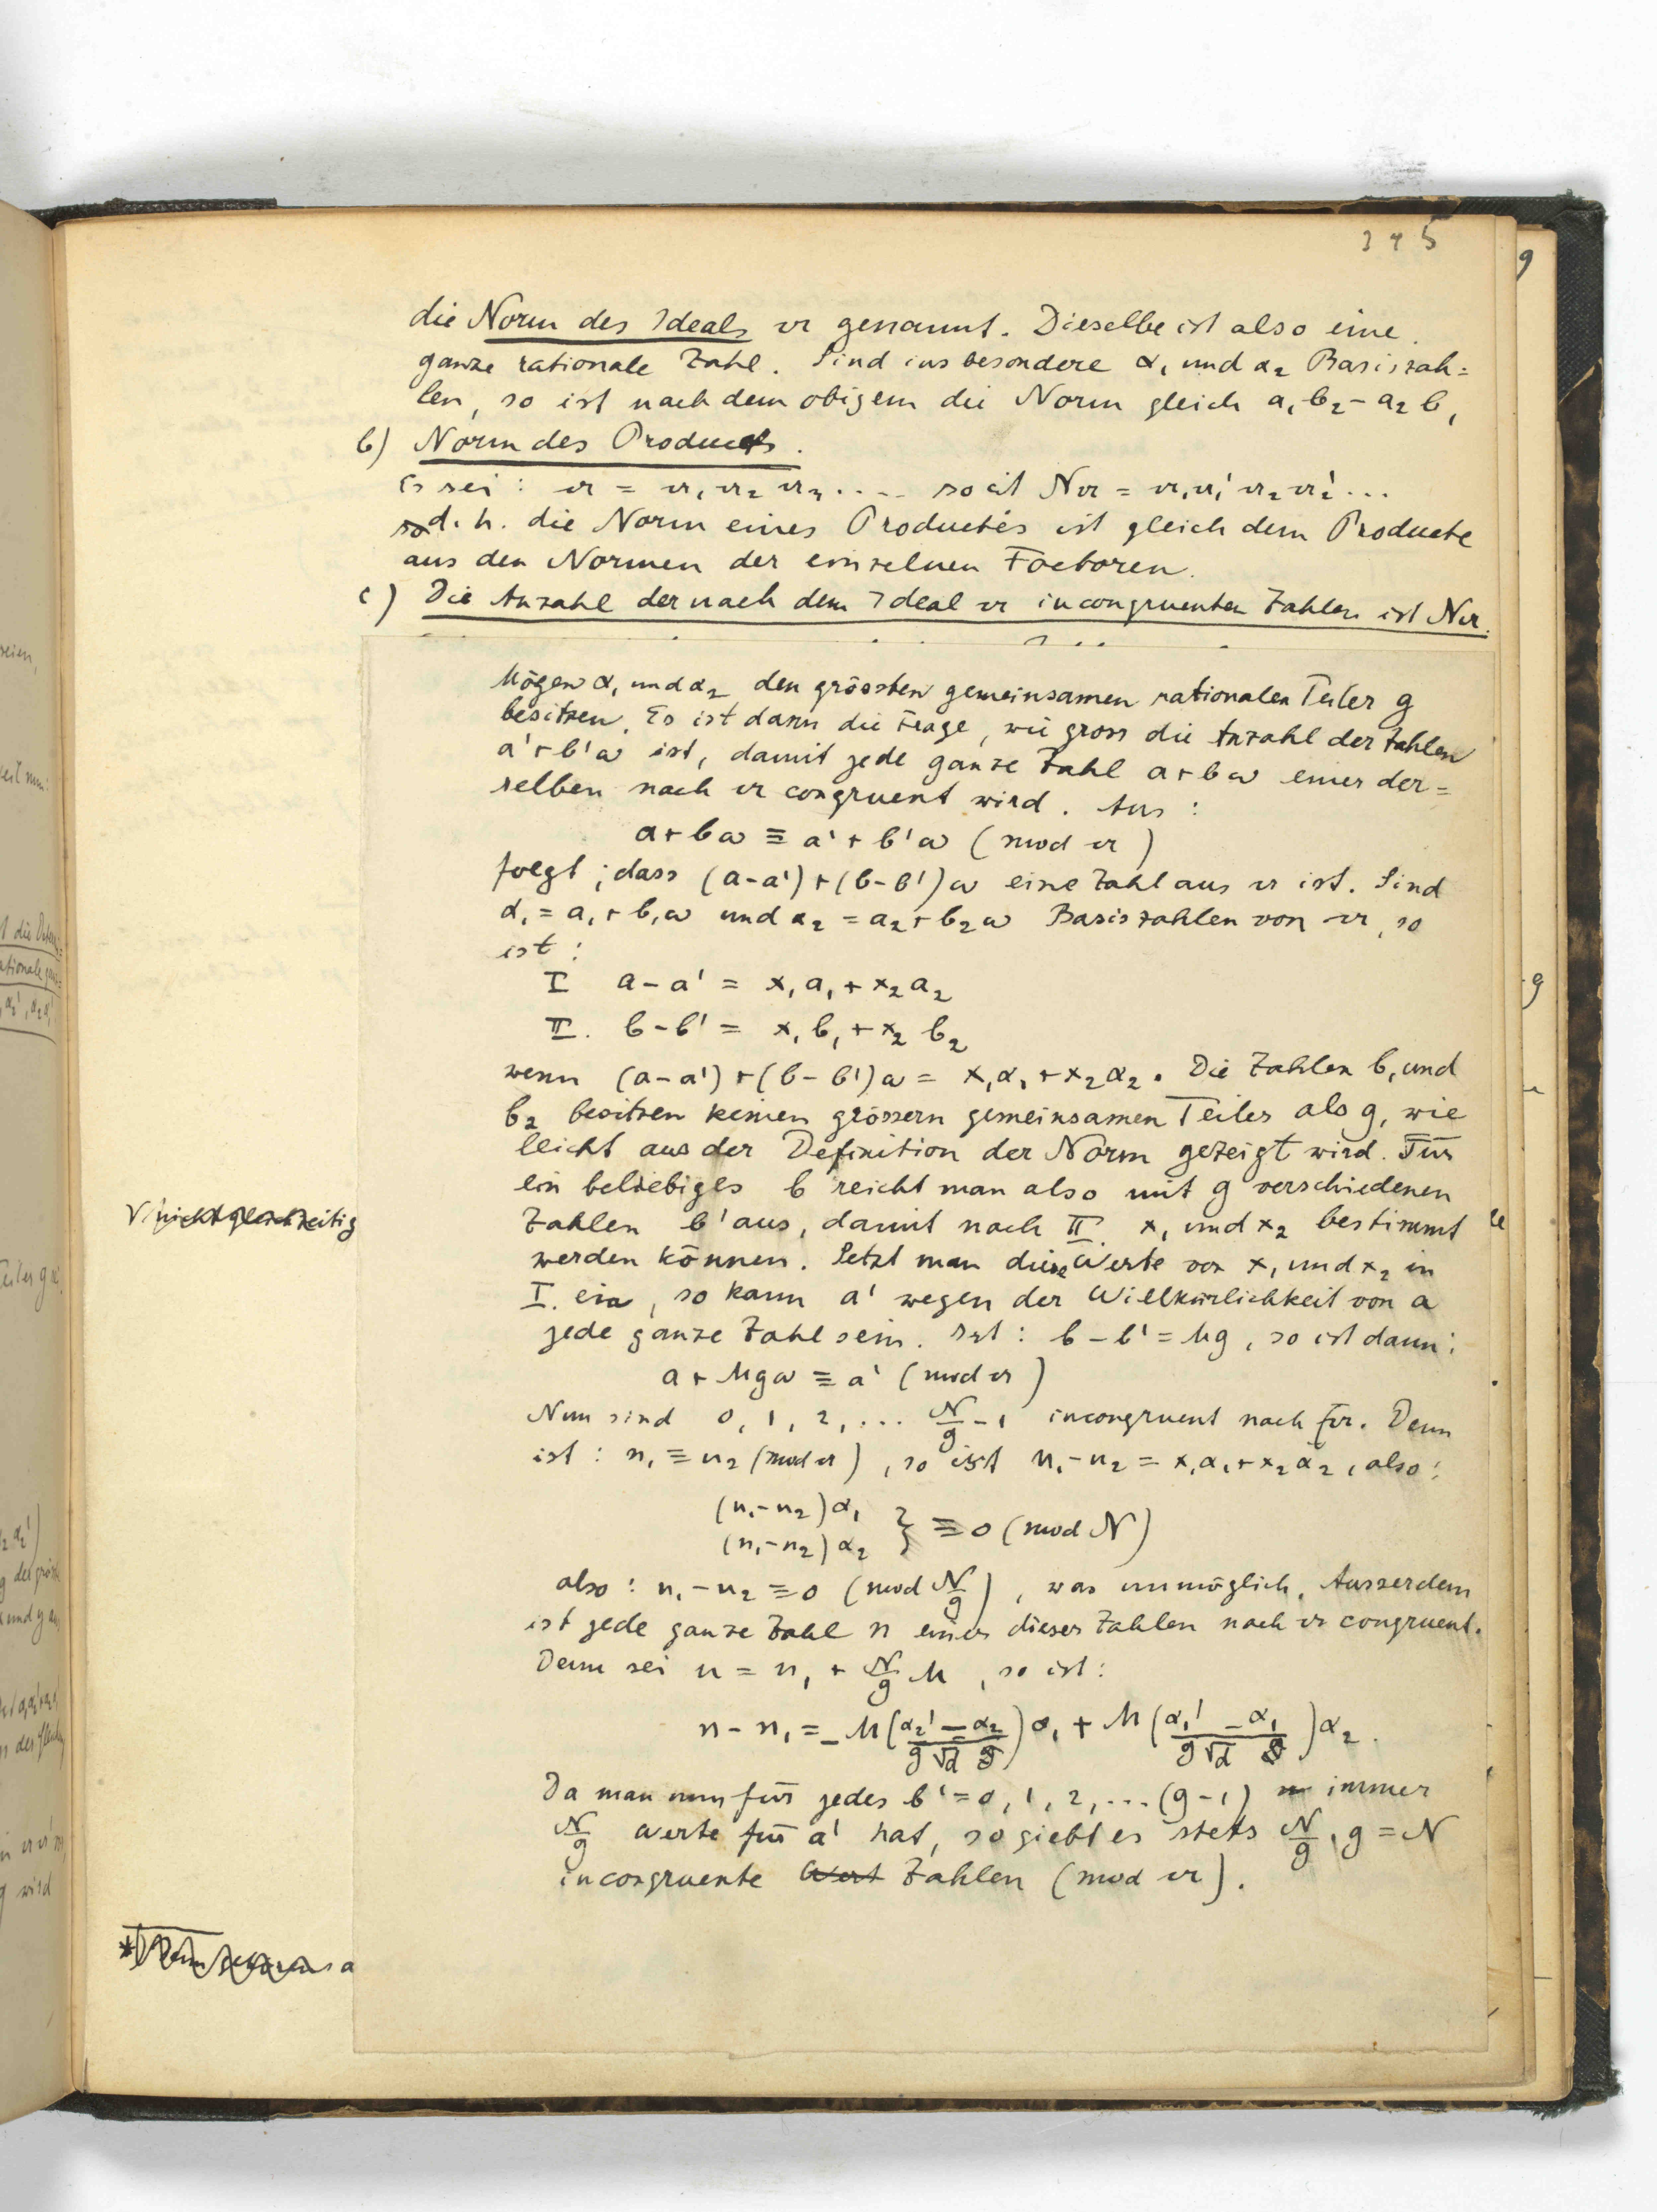 345
die Norm des Ideals 𝔞 genannt. Dieselbe ist also eine
ganze rationale Zahl. Sind insbesondere α₁ und α₂ Basiszah=
len, so ist nach dem obigem die Norm gleich a₁b₂ - a₂b₁
b) Norm des Products.
Es sei : 𝔞 = 𝔞₁ 𝔞₂ 𝔞₃ ..... so ist N𝔞 = 𝔞₁𝔞₁' 𝔞₂𝔞₂' ...
d. h. die Norm eines Productes ist gleich dem Producte
aus den Normen der einzelnen Factoren.
c) Die Anzahl der nach dem Ideal 𝔞 incongruenten Zahlen ist N𝔞.
Mögen α₁ und α₂ den grössten gemeinsamen rationalen Teiler g
besitzen. Es ist dann die Frage, wie gross die Anzahl der Zahlen
a'+b'ω ist, damit jede ganze Zahl a+bω einer der=
selben nach 𝔞 congruent wird. Aus :
a+bω ≡ a'+b'ω (mod 𝔞)
folgt ; dass (a-a')+(b-b')ω eine Zahl aus 𝔞 ist. Sind
α₁ = a₁+b₁ω und α₂ = a₂+b₂ω Basiszahlen von 𝔞, so
ist :
I a-a' = x₁a₁+x₂a₂
II. b-b' = x₁b₁+x₂b₂
wenn (a-a')+(b-b')ω = x₁α₁+x₂α₂. Die Zahlen b₁ und
b₂ besitzen keinen grössern gemeinsamen Teiler als g, wie
leicht aus der Definition der Norm gezeigt wird. Für
ein beliebiges b reicht man also mit g verschiedenen
V nicht gleichzeitig
Zahlen b' aus, damit nach II. x₁ und x₂ bestimmt
werden können. Setzt man diese Werte von x₁ und x₂ in
I. ein, so kann a' wegen der Willkürlichkeit von a
jede ganze Zahl sein. Ist : b-b' = Mg, so ist dann :
a + Mgω ≡ a' (mod 𝔞)
Nun sind 0, 1, 2, ... N/g - 1 incongruent nach 𝔞. Denn
ist : n₁ ≡ n₂ (mod 𝔞), so ist n₁-n₂ = x₁α₁+x₂α₂, also :
(n₁-n₂)α₁
(n₁-n₂)α₂ } ≡ 0 (mod N)
also : n₁-n₂ ≡ 0 (mod N/g), was unmöglich. Ausserdem
ist jede ganze Zahl n einer dieser Zahlen nach 𝔞 congruent.
Denn sei n = n₁ + N/g M, so ist :
n - n₁ = - M((α₂' - α₂)/(g√d))α₁ + M((α₁' - α₁)/(g√d))α₂.
Da man nun für jedes b' = 0, 1, 2, ... (g-1) immer
N/g Werte für a' hat, so giebt es stets N/g . g = N
incongruente Wert Zahlen (mod 𝔞).